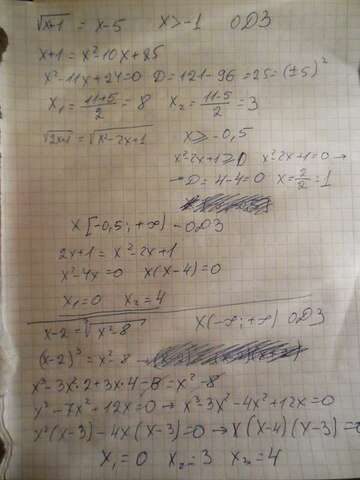 √x+1 = x-5    x>-1    ОДЗ
x+1 = x²-10x+25
x²-11x+24=0    D=121-96=25=(±5)²
x₁=(11+5)/2=8    x₂=(11-5)/2=3
√2x+1 = √x²-2x+1    x≥-0,5
x²-2x+1≥0    x²-2x+1=0 →
→ D=4-4=0    x=2/2=1
x[-0,5;+∞) - ОДЗ
2x+1 = x²-2x+1
x²-4x=0    x(x-4)=0
x₁=0    x₂=4
x-2=∛x²-8    x(-∞;+∞) ОДЗ
(x-2)³=x²-8 →
x³-3x²·2+3x·4-8=x²-8
x³-7x²+12x=0 → x³-3x²-4x²+12x=0
x²(x-3)-4x(x-3)=0 → x(x-4)(x-3)=0
x₁=0    x₂=3    x₃=4